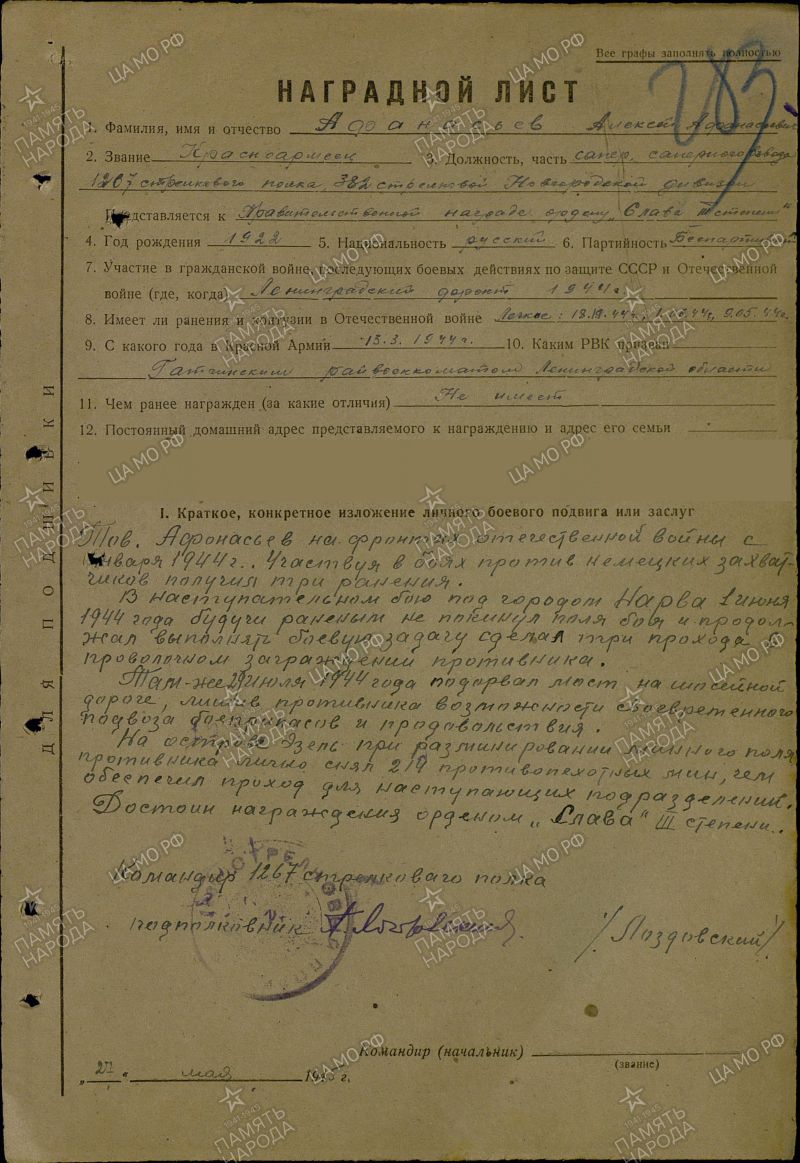 Все графы заполнять полностью
283
НАГРАДНОЙ ЛИСТ
1. Фамилия, имя и отчество Афанасьев Алексей Афанасьевич
2. Звание Красноармеец 3. Должность, часть сапер, саперного взвода
1267 стрелкового полка, 382 стрелковой Новгородской дивизии
Представляется к Правительственной награде ордену „Слава III степени"
4. Год рождения 1922 5. Национальность русский 6. Партийность Беспартийный
7. Участие в гражданской войне, последующих боевых действиях по защите СССР и Отечественной
войне (где, когда) Ленинградский фронт 1944 г.
8. Имеет ли ранения и контузии в Отечественной войне Легкое:
9. С какого года в Красной Армии 13.3. 1944 г. 10. Каким РВК призван
Гатчинским райвоенкоматом Ленинградской области
11. Чем ранее награжден (за какие отличия) Не имеет
12. Постоянный домашний адрес представляемого к награждению и адрес его семьи
I. Краткое, конкретное изложение личного боевого подвига или заслуг
Тов. Афонасьев на фронтах отечественной войны с
января 1944 г.. Участвуя в боях против немецких захват-
чиков получил три ранения.
В наступательном бою под городом Нарва 1 июня
1944 года будучи раненым не покинул поля боя и продол-
жал выполнять боевую задачу сделал три прохода в
проволочном заграждении противника.
Там-же июля 1944 года подорвал мост на шоссейной
дороге, лишив противника возможности своевременного
подвоза боеприпасов и продовольствия.
На острове Эзель при разминировании минного поля
противника лично снял противопехотных мин, чем
обеспечил проход для наступающих подразделений.
Достоин награждения орденом „Слава" III степени.
Командир 1267 стрелковаго полка
подполковник /Лаздовский/
Командир (начальник)
(звание)
мая 1945 г.
ДЛЯ ПОДШИВКИ
ПАМЯТЬ НАРОДА
1941-1945
ЦА МО РФ